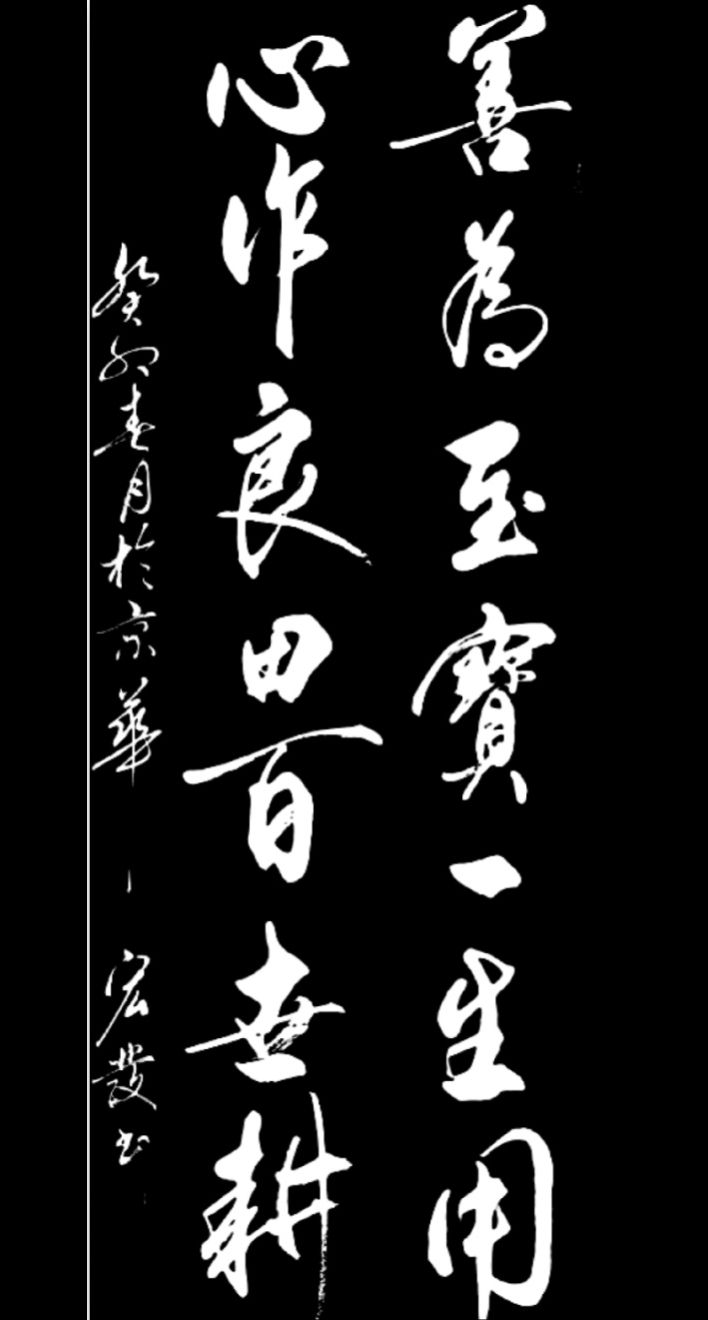 善為至寶一生用
心作良田百世耕
癸卯春月於京華
宏發书